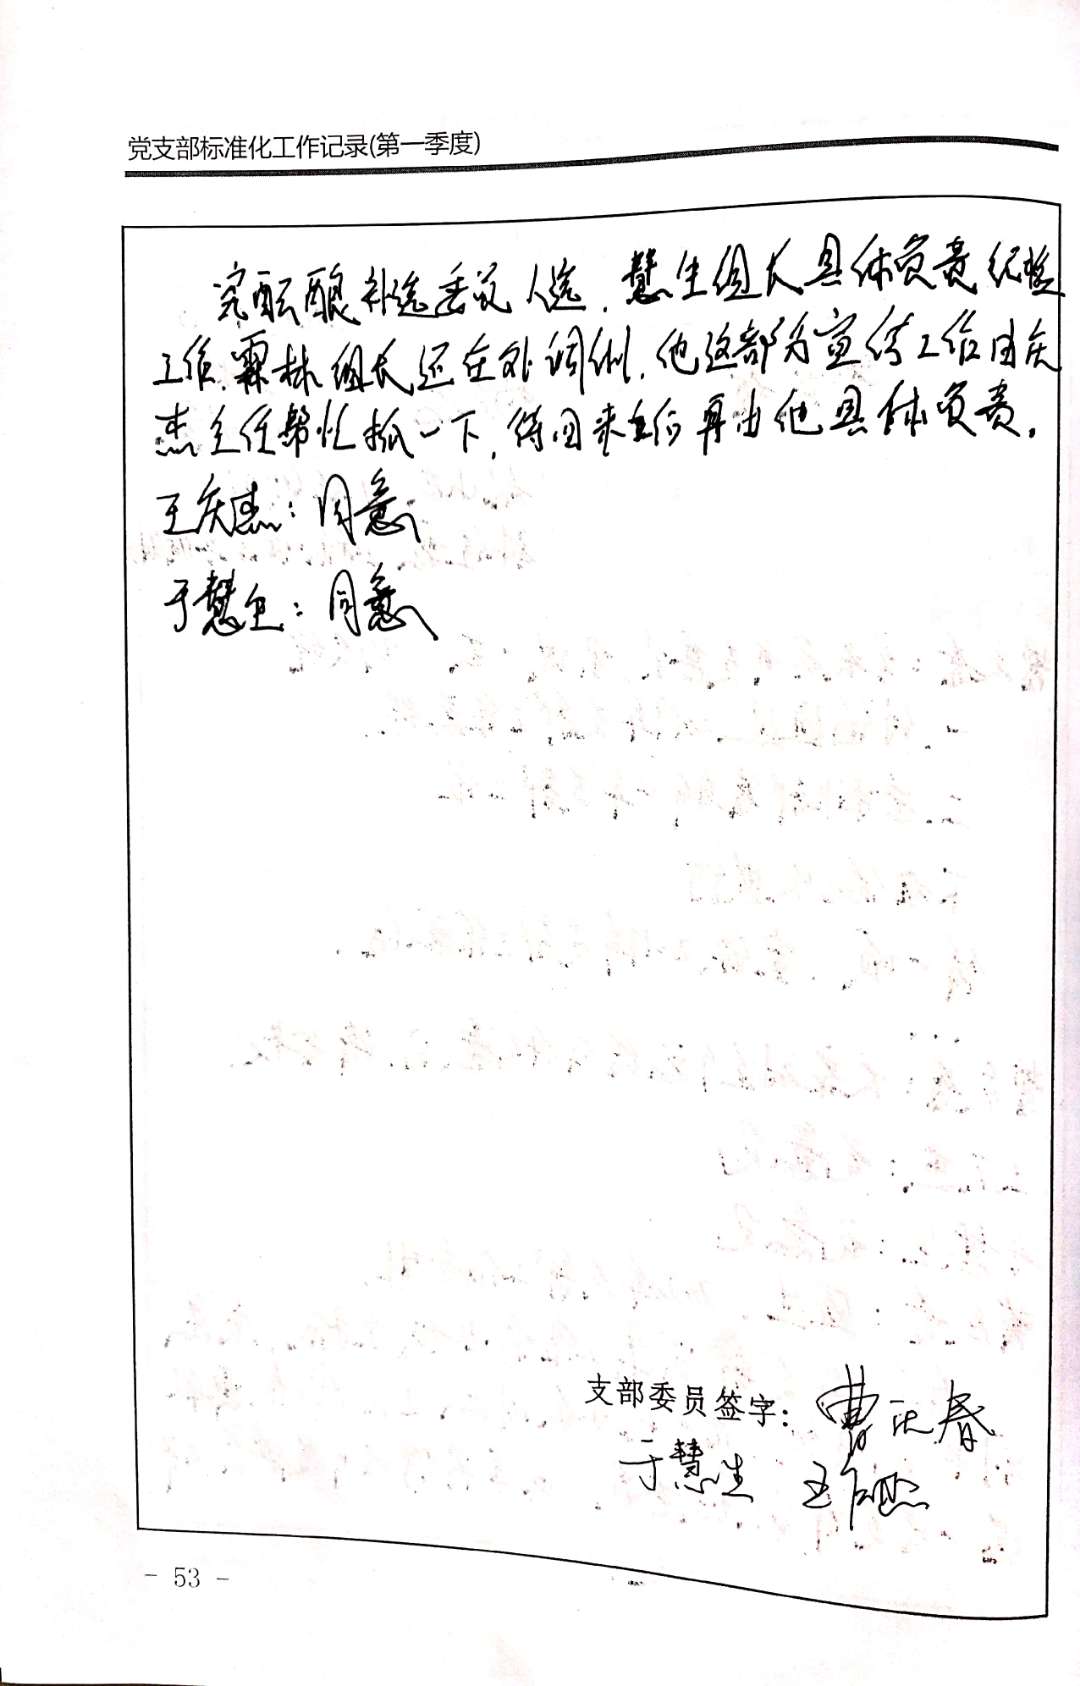 党支部标准化工作记录(第一季度)
究酝酿补选委员人选,慧生组长具体负责纪检
工作,霖林组长还在处调例,他这部分宣传工作由庆
杰主任帮忙抓一下,待回来后再由他具体负责。
王庆杰:同意
于慧生:同意
支部委员签字:曹庆春
于慧生 王庆杰
- 53 -